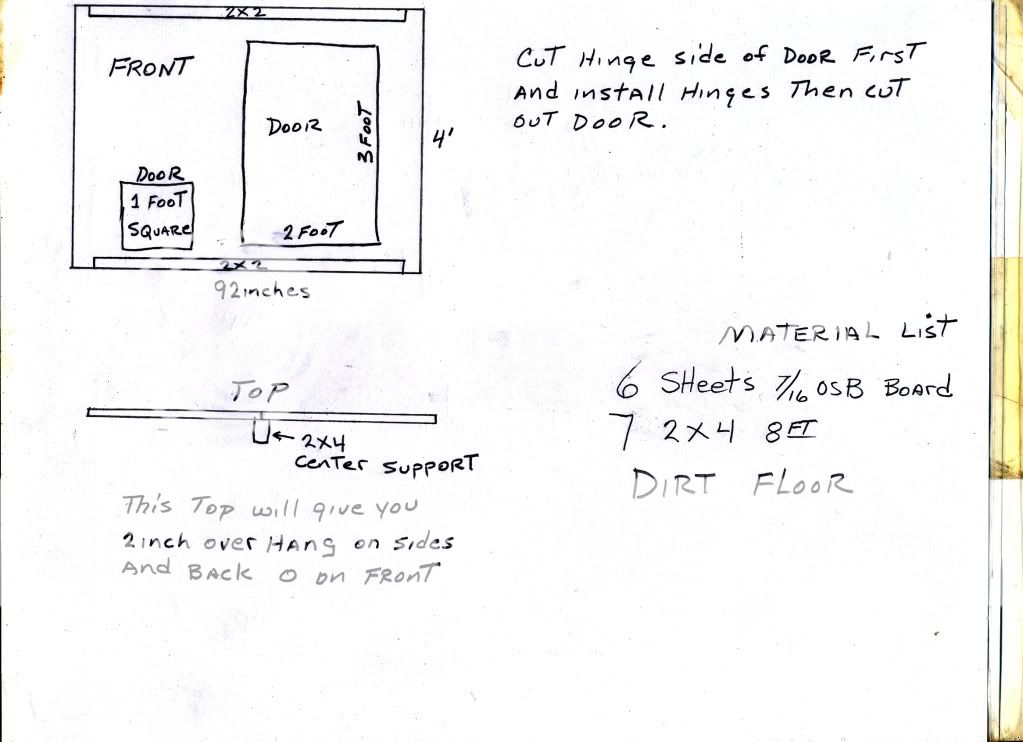 2x2
FRONT
DOOR
3 FOOT
4'
DOOR
1 FOOT
SQUARE
2 FOOT
2x2
92inches
CUT Hinge side of DOOR First
And install Hinges Then cut
out DOOR.
MATERIAL List
6 SHeets 7/16 OSB BOArd
7 2x4 8FT
DIRT FLOOR
TOP
2x4
CenTer SUPPORT
This Top will give you
2inch over HAng on sides
And BAck 0 on FRONT